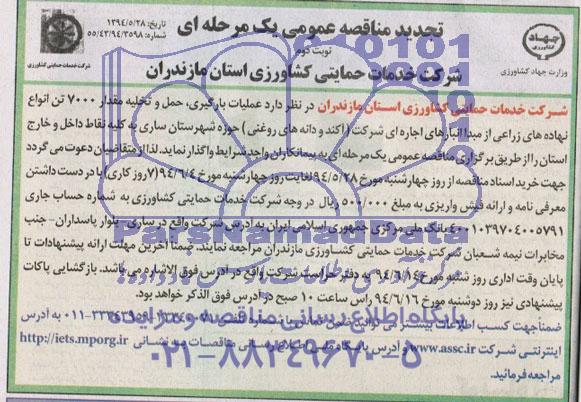 تجدید مناقصه عمومی یک مرحله ای
نوبت دوم
شرکت خدمات حمایتی کشاورزی استان مازندران
تاریخ: ۱۳۹۴/۵/۲۸
شماره: ۵۵/۴۳/۹۴/۳۵۹۸
جهاد
کشاورزی
وزارت جهاد کشاورزی
شرکت خدمات حمایتی کشاورزی
شرکت خدمات حمایتی کشاورزی استان مازندران در نظر دارد عملیات بارگیری، حمل و تخلیه مقدار ۷۰۰۰ تن انواع
نهاده های زراعی از مبدا انبارهای اجاره ای شرکت (اکند و دانه های روغنی) حوزه شهرستان ساری به کلیه نقاط داخل و خارج
استان را از طریق برگزاری مناقصه عمومی یک مرحله ای به پیمانکاران واجد شرایط واگذار نماید. لذا از متقاضیان دعوت می گردد
جهت خرید اسناد مناقصه از روز چهارشنبه مورخ ۹۴/۵/۲۸ لغایت روز چهارشنبه مورخ ۹۴/۶/۴ (۷ روز کاری) با در دست داشتن
معرفی نامه و ارائه فیش واریزی به مبلغ ۵۰۰/۰۰۰ ریال در وجه شرکت خدمات حمایتی کشاورزی به شماره حساب جاری
۴۰۰۱۰۳۹۷۰۴۰۰۵۷۹۱ بانک ملی مرکزی جمهوری اسلامی ایران به آدرس شرکت واقع در ساری- بلوار پاسداران- جنب
مخابرات نیمه شعبان شرکت خدمات حمایتی کشاورزی مازندران مراجعه نمایند. ضمنا آخرین مهلت ارائه پیشنهادات تا
پایان وقت اداری روز شنبه مورخ ۹۴/۶/۱۴ به دفتر حراست شرکت واقع در آدرس فوق الاشاره می باشد. بازگشایی پاکات
پیشنهادی نیز روز دوشنبه مورخ ۹۴/۶/۱۶ راس ساعت ۱۰ صبح در آدرس فوق الذکر خواهد بود.
ضمنا جهت کسب اطلاعات بیشتر می توانید ضمن تماس با شماره تلفن ۰۱۱- به آدرس
اینترنتی شرکت www.assc.ir و آدرس پایگاه ملی اطلاع رسانی مناقصات به نشانی http://iets.mporg.ir
مراجعه فرمائید.
ParsNamadData
پایگاه اطلاع رسانی مناقصه و مزایده
۰۲۱-۸۸۳۴۹۶۷۰-۵